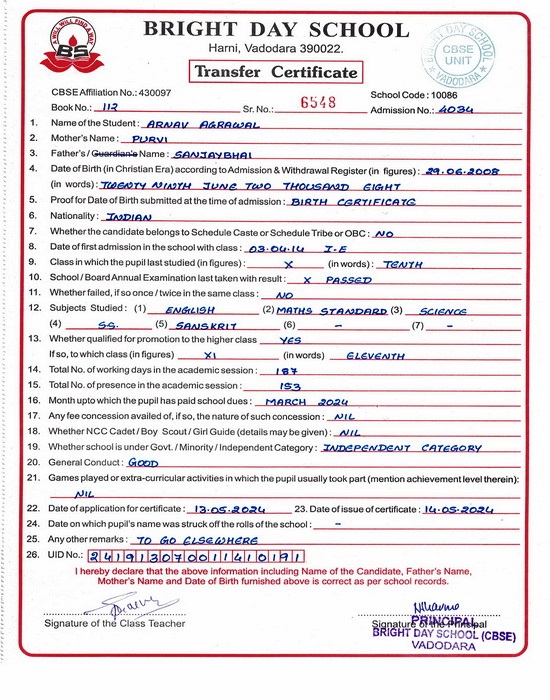 A WILL WILL FIND A WAY
BS
BRIGHT DAY SCHOOL
Harni, Vadodara 390022.
Transfer Certificate
BRIGHT DAY SCHOOL
CBSE
UNIT
* VADODARA *
CBSE Affiliation No.: 430097 School Code : 10086
Book No.: 112 Sr. No.: 6548 Admission No.: 4034
1. Name of the Student : ARNAV AGRAWAL
2. Mother's Name : PURVI
3. Father's / Guardian's Name : SANJAYBHAI
4. Date of Birth (in Christian Era) according to Admission & Withdrawal Register (in figures) : 29.06.2008
(in words) : TWENTY NINTH JUNE TWO THOUSAND EIGHT
5. Proof for Date of Birth submitted at the time of admission : BIRTH CERTIFICATE
6. Nationality : INDIAN
7. Whether the candidate belongs to Schedule Caste or Schedule Tribe or OBC : NO
8. Date of first admission in the school with class : 03.04.14 I-E
9. Class in which the pupil last studied (in figures) : X (in words) : TENTH
10. School / Board Annual Examination last taken with result : X PASSED
11. Whether failed, if so once / twice in the same class : NO
12. Subjects Studied : (1) ENGLISH (2) MATHS STANDARD (3) SCIENCE
(4) SS. (5) SANSKRIT (6) - (7) -
13. Whether qualified for promotion to the higher class YES
If so, to which class (in figures) XI (in words) ELEVENTH
14. Total No. of working days in the academic session : 187
15. Total No. of presence in the academic session : 153
16. Month upto which the pupil has paid school dues : MARCH 2024
17. Any fee concession availed of, if so, the nature of such concession : NIL
18. Whether NCC Cadet / Boy Scout / Girl Guide (details may be given) : NIL
19. Whether school is under Govt. / Minority / Independent Category : INDEPENDENT CATEGORY
20. General Conduct : GOOD
21. Games played or extra-curricular activities in which the pupil usually took part (mention achievement level therein) :
NIL
22. Date of application for certificate : 13.05.2024 23. Date of issue of certificate : 14.05.2024
24. Date on which pupil's name was struck off the rolls of the school : -
25. Any other remarks : TO GO ELSEWHERE
26. UID No.: 241913070011410191
I hereby declare that the above information including Name of the Candidate, Father's Name,
Mother's Name and Date of Birth furnished above is correct as per school records.
Signature of the Class Teacher Signature of the Principal
PRINCIPAL
BRIGHT DAY SCHOOL (CBSE)
VADODARA